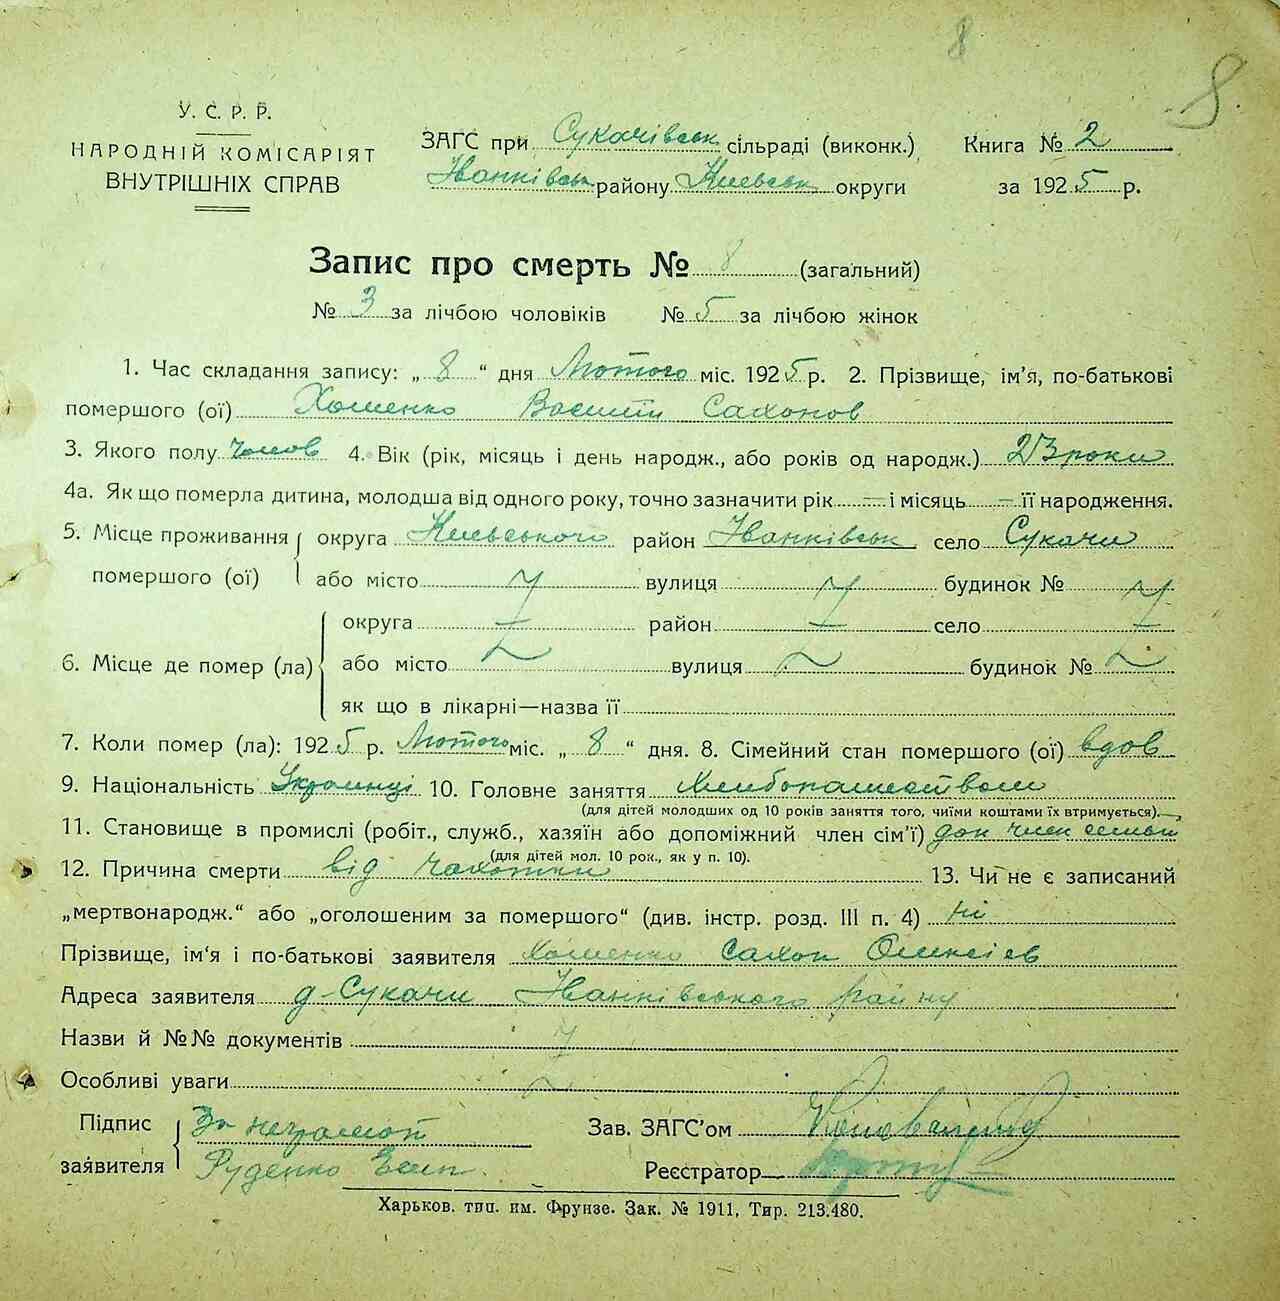 8
8.
У. С. Р. Р.
НАРОДНІЙ КОМІСАРІЯТ
ВНУТРІШНІХ СПРАВ
ЗАГС при Сукачівськ сільраді (виконк.) Книга № 2
Іванківськ району Київськ округи за 1925 р.
Запис про смерть № 8 (загальний)
№ 3 за лічбою чоловіків № 5 за лічбою жінок
1. Час складання запису: „8“ дня Лютого міс. 1925 р. 2. Прізвище, ім’я, по-батькові
помершого (ої) Хоменко Василь Сахонов
3. Якого полу чолов 4. Вік (рік, місяць і день народж., або років од народж.) 23 роки
4а. Як що померла дитина, молодша від одного року, точно зазначити рік — і місяць — її народження.
5. Місце проживання округа Київського район Іванківськ село Сукачи
помершого (ої) або місто вулиця будинок №
округа район село
6. Місце де помер (ла) або місто вулиця будинок №
як що в лікарні—назва її
7. Коли помер (ла): 1925 р. Лютого міс. „8“ дня. 8. Сімейний стан помершого (ої) вдов
9. Національність Українці 10. Головне заняття Хлибопашеством
(для дітей молодших од 10 років заняття того, чиїми коштами їх втримується).
11. Становище в промислі (робіт., служб., хазяїн або допоміжний член сім’ї) доп член семьи
(для дітей мол. 10 рок., як у п. 10).
12. Причина смерти від чахотки 13. Чи не є записаний
„мертвонародж.“ або „оголошеним за помершого“ (див. інстр. розд. III п. 4) ні
Прізвище, ім‘я і по-батькові заявителя Хоменко Сахон Олексіев
Адреса заявителя д-Сукачи Іванківського району
Назви й №№ документів
Особливі уваги
Підпис За неграмот Зав. ЗАГС’ом
заявителя Руденко Реєстратор
Харьков. тип. им. Фрунзе. Зак. № 1911, Тир. 213.480.